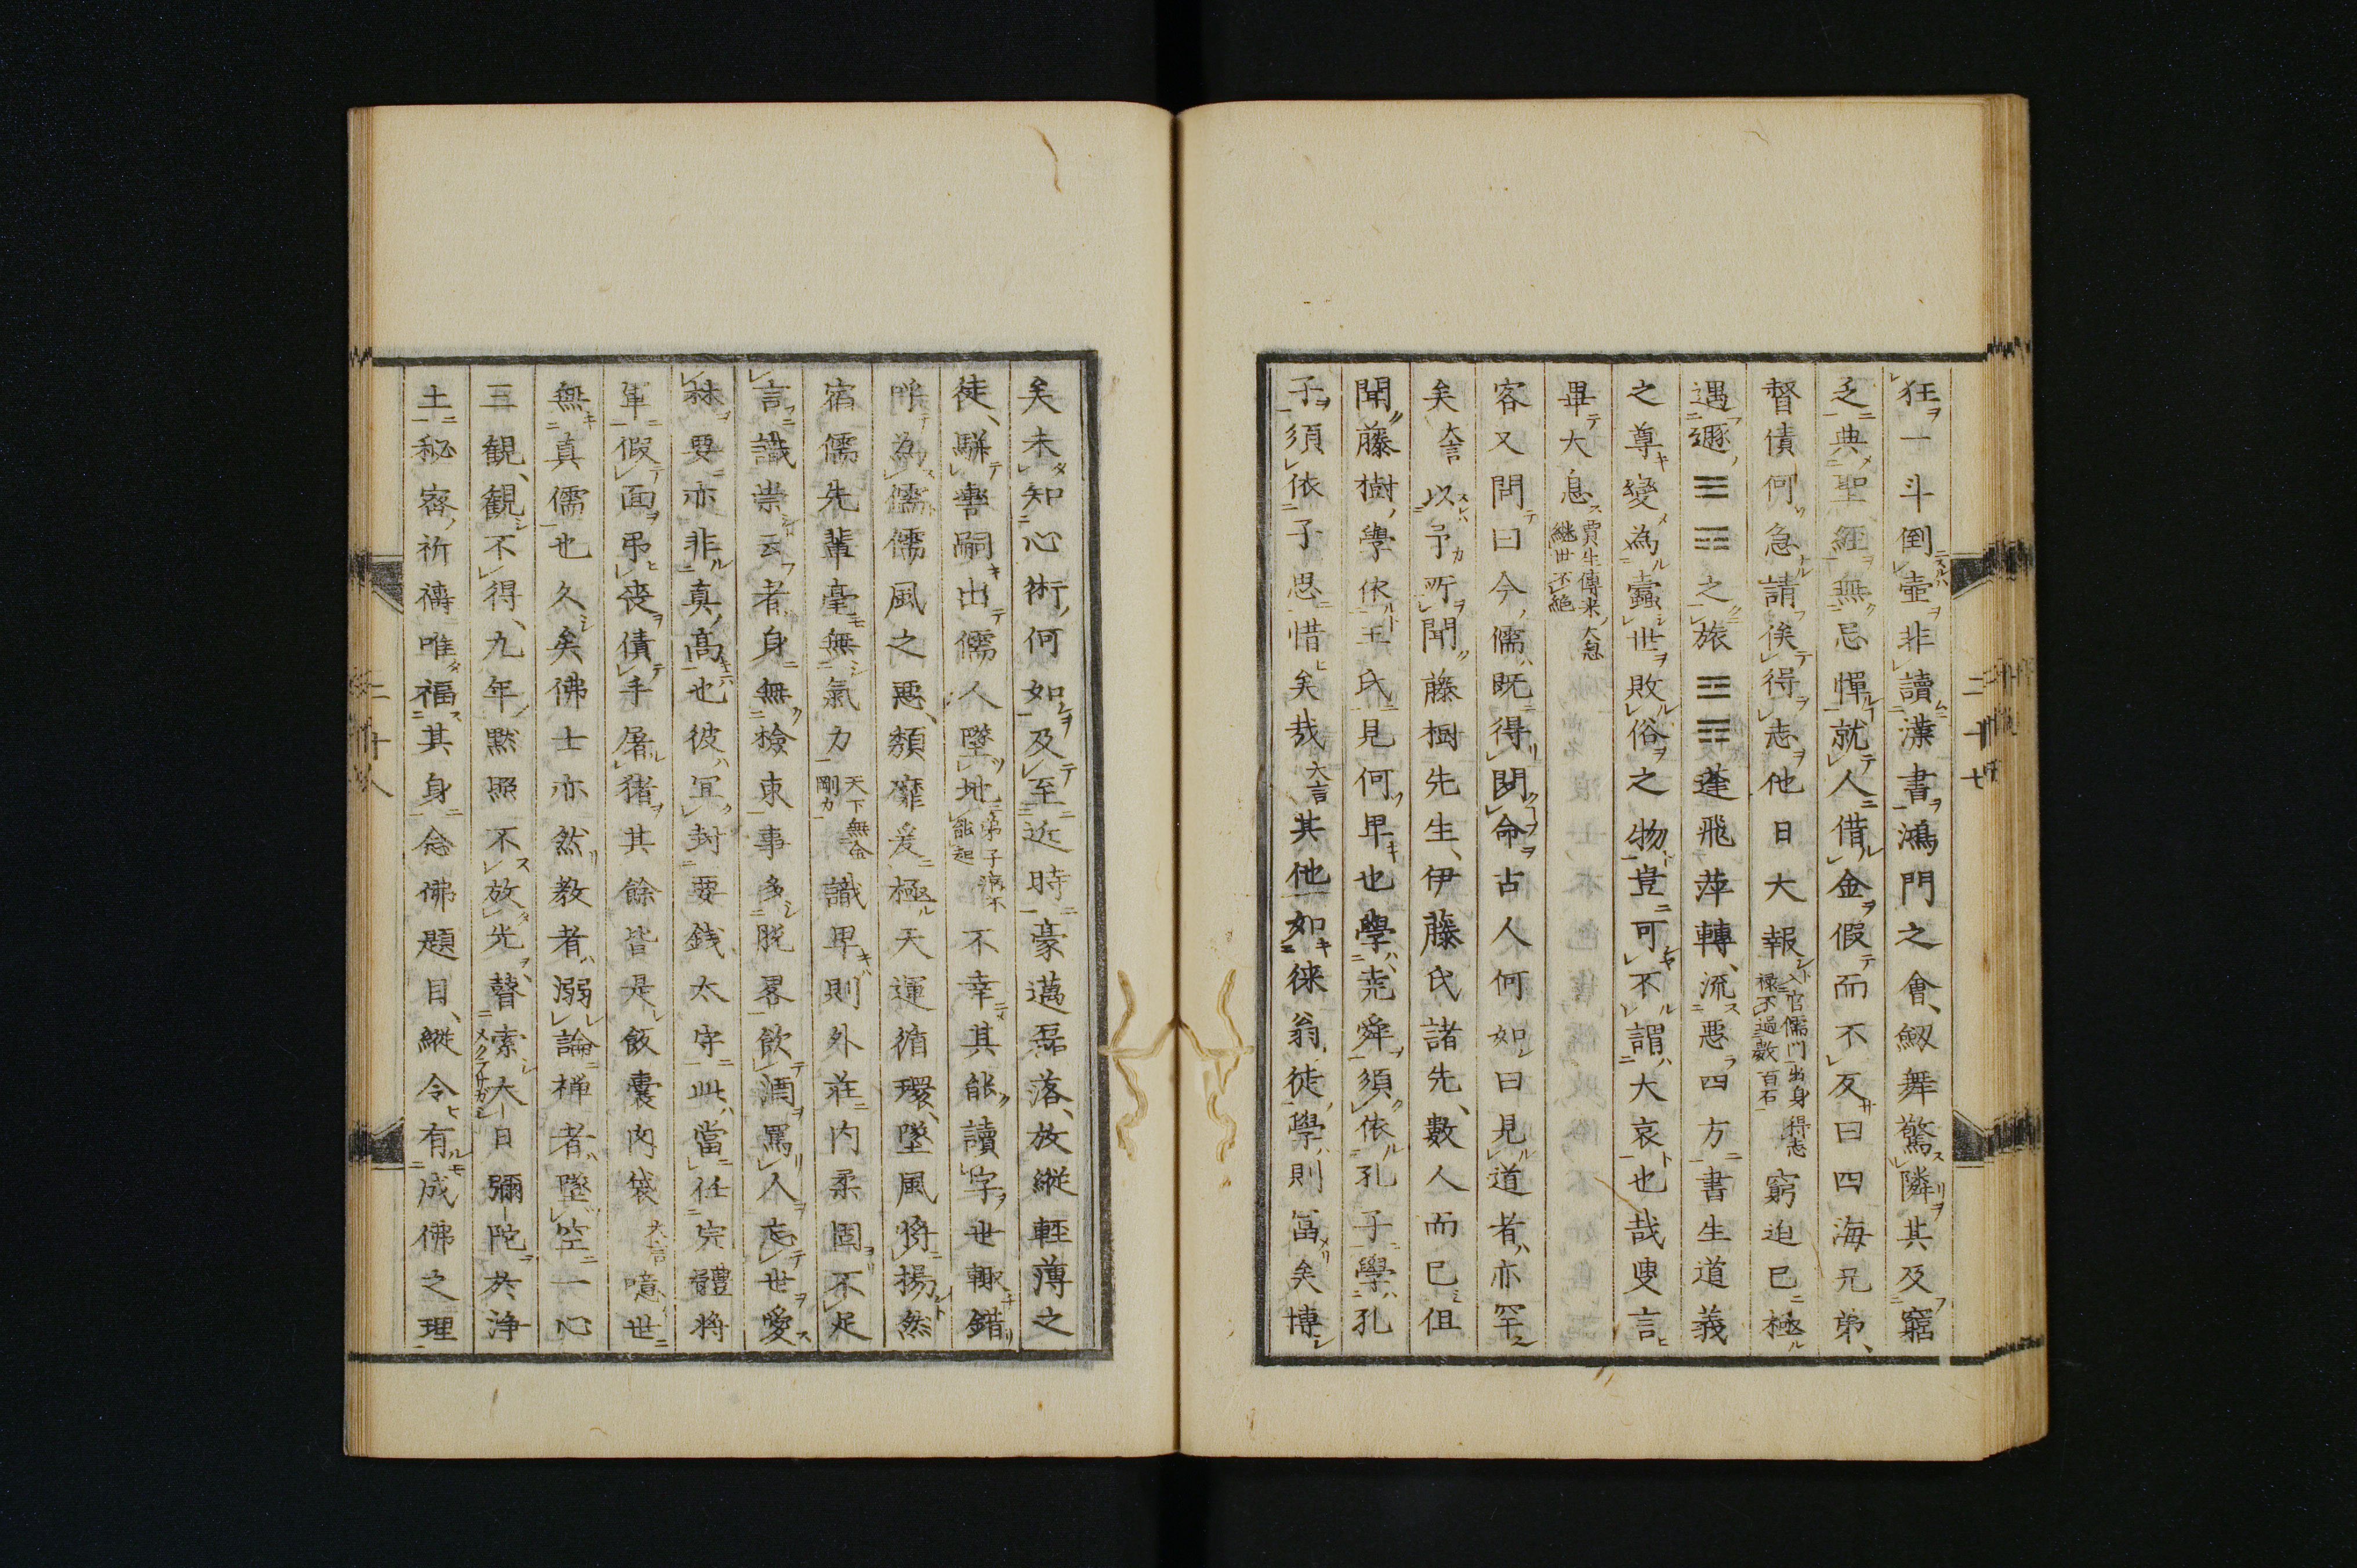 狂一斗倒壺非讀漢書鴻門之會、劔舞驚隣其及窮
乏典聖經無忌憚就人借金假而不反曰四海兄弟、
督債何急請俟得志他日大報入官儒門出身得志祿不過數百石窮迫已極
遇遯䷠之旅䷷蓬飛萍轉、流惡四方書生道義
之尊變為蠹世敗俗之物豈可不謂大哀也哉叟言
畢大息賈生傳來大息継世不絶
客又問曰今儒既得聞命古人何如曰見道者亦罕
矣大言以予所聞藤樹先生、伊藤氏諸先、數人而已但
聞藤樹學依王氏見何卑也學尭舜須依孔子學孔
子須依子思惜矣哉大言其他如徠翁徒學則冨矣博
矣未知心術何如及至近時豪邁磊落、放縱輕薄之
徒、駢轡嗣出儒人墜地三弟子病不能起不幸其能讀字世輙錯
呼為儒儒風之惡、頽靡爰極天運循環、墜風将揚然
宿儒先輩毫無氣力天下無金剛力識卑則外荘内柔固不足
言識崇云者身無檢束事多脱畧飲酒罵人忘世愛
秣要亦非真高也彼冝封要錢太守此當任完體将
軍假面弔喪債手屠猪其餘皆是飯囊肉袋大言噫世
無真儒也久矣佛士亦然教者溺論禅者墜空一心
三観、観不得、九年黙照不放先瞽索大日彌陀於浄
土秘密祈禱唯福其身念佛題目、縱令有成佛之理
二十七